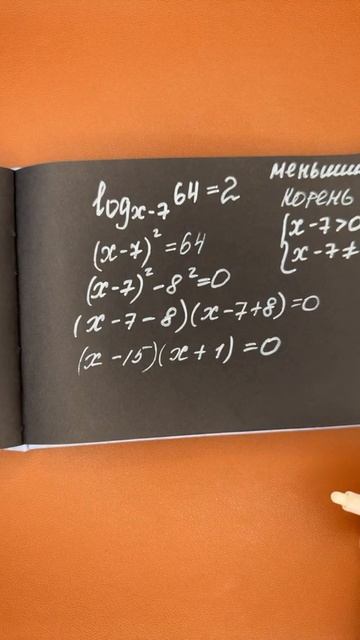 log x-7 64 = 2
(x-7)² = 64
(x-7)² - 8² = 0
(x-7-8)(x-7+8) = 0
(x-15)(x+1) = 0
меньши
корень
{x-7>0
x-7≠